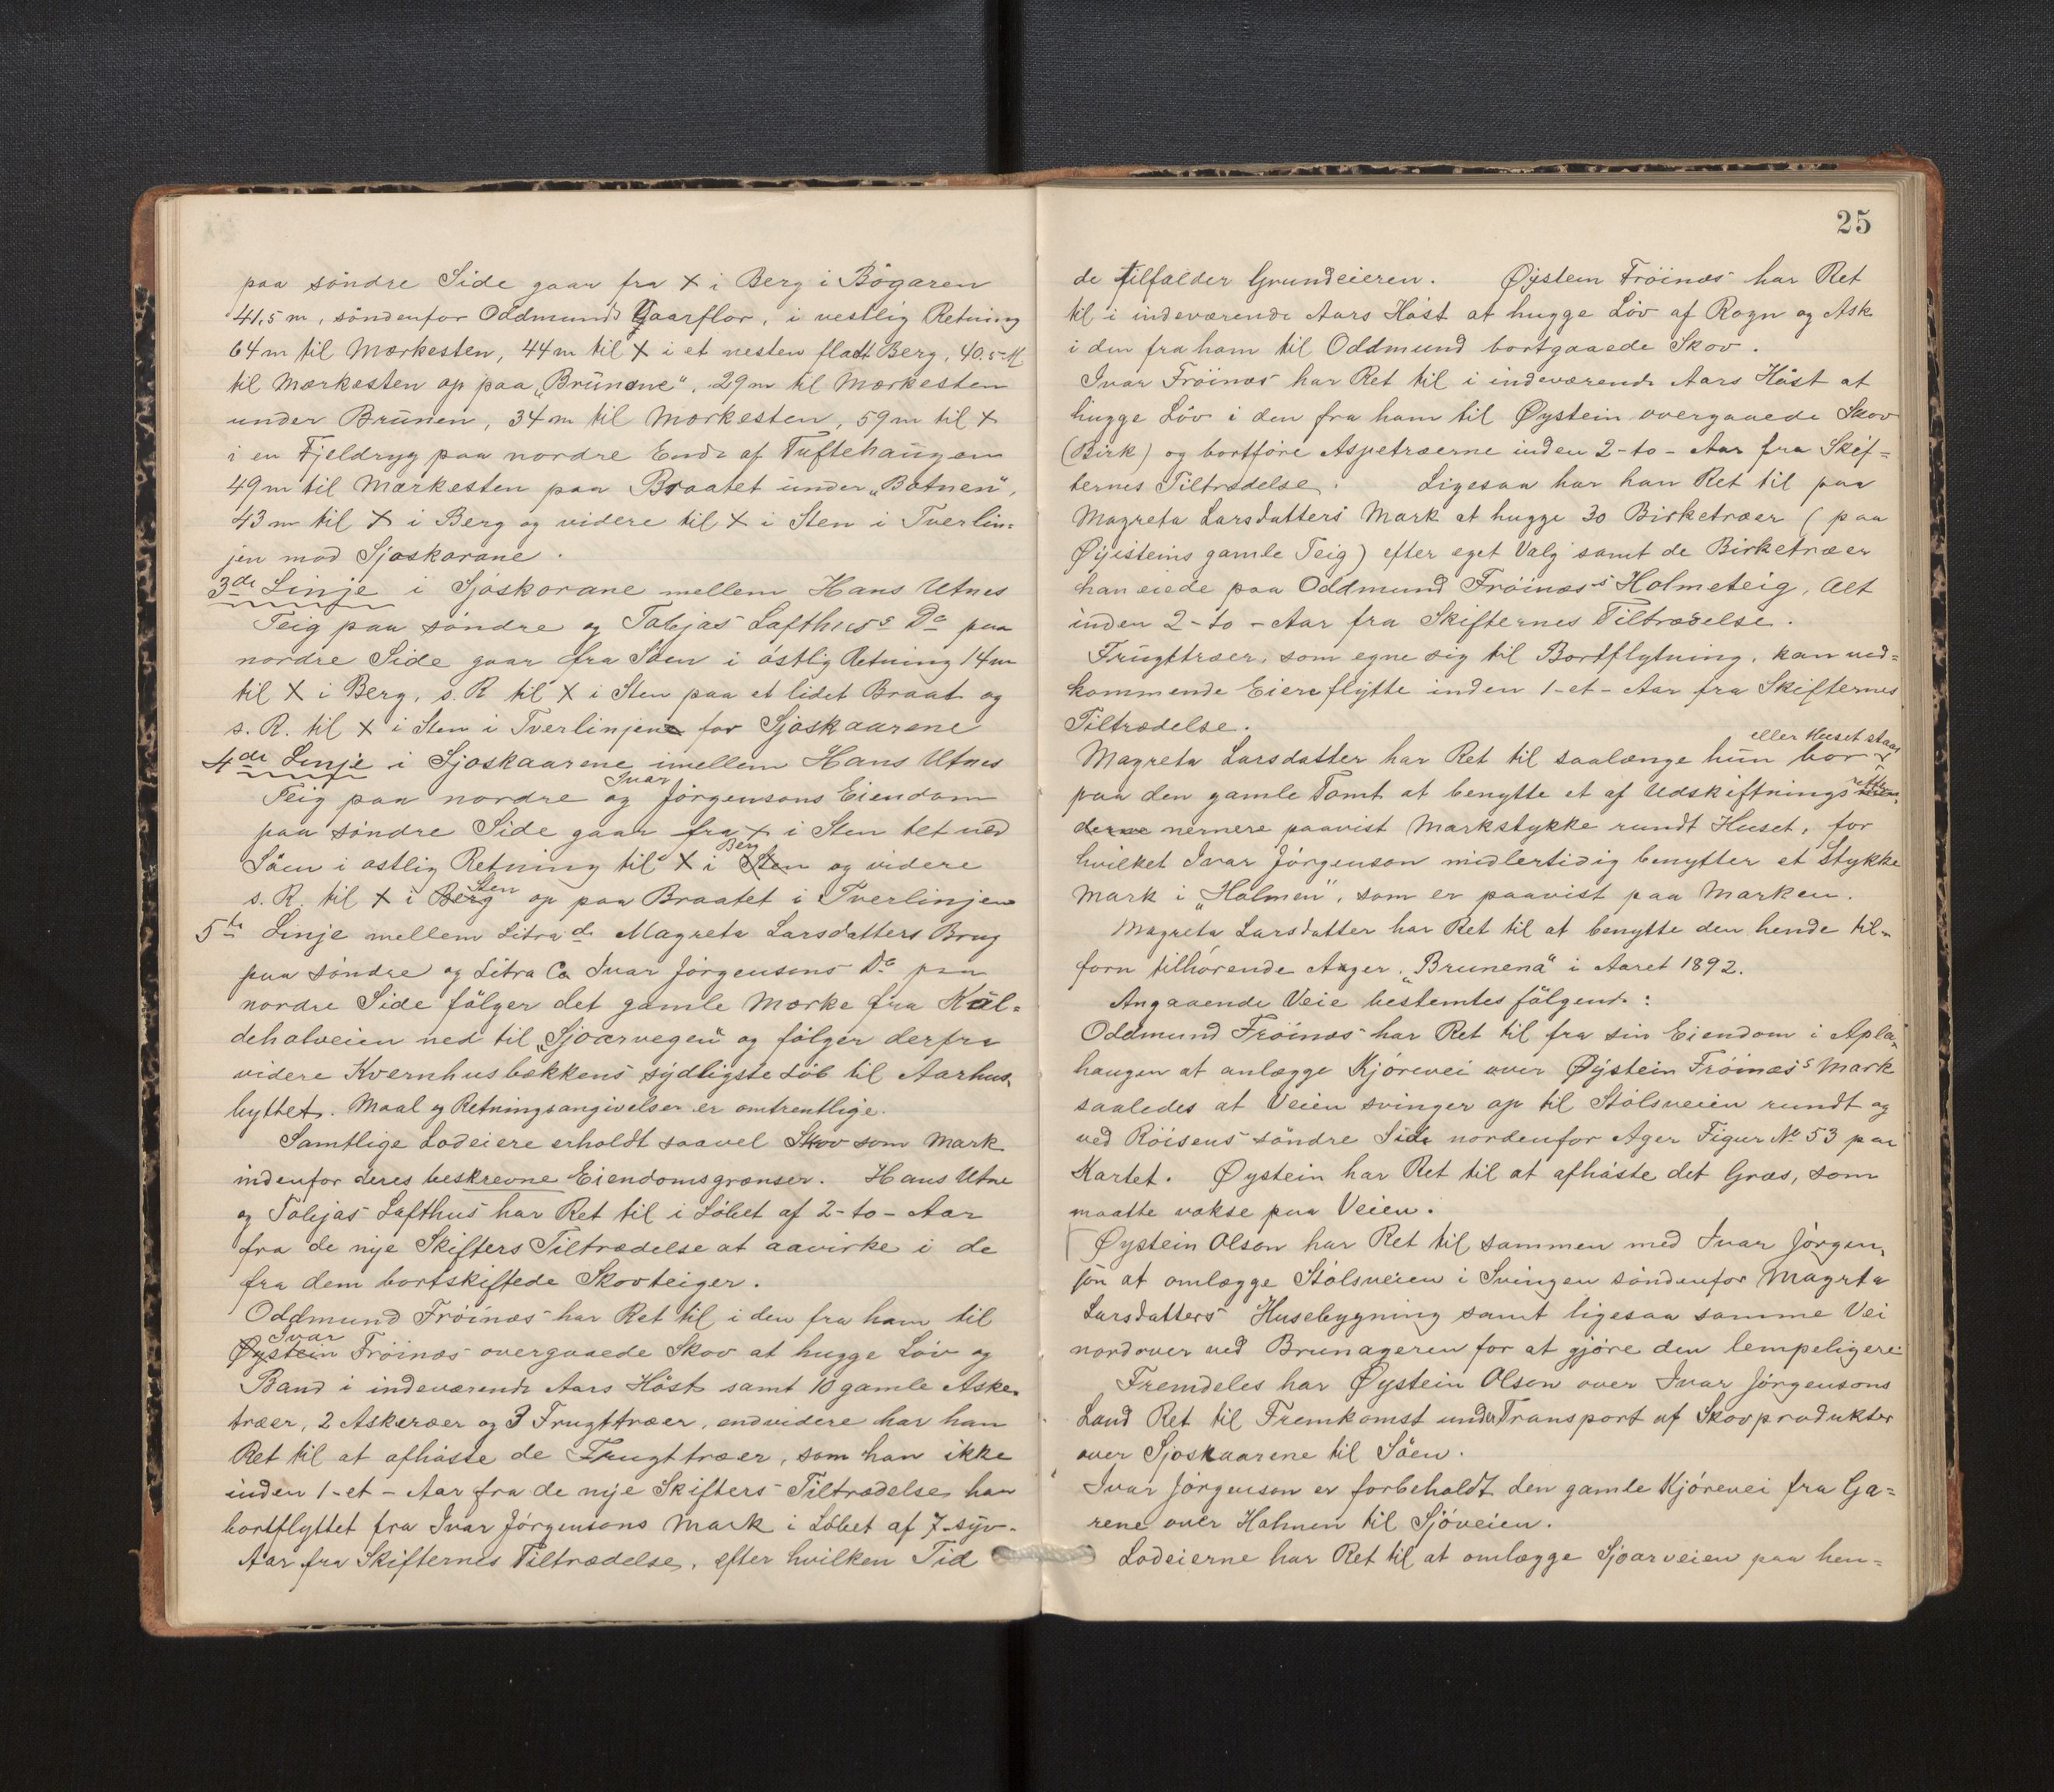 paa söndre Side gaar fra X i Berg i Bögaren
41,5 m, söndenfor Oddmunds Gaarflor, i vestlig Retning
64 m til Mærkesten, 44 m til X i et nesten fladt Berg, 40.5 M
til Mærkesten op paa „Brünene“, 29 m til Mærkesten
under Brünen, 34 m til Mærkesten, 59 m til X
i en Fjeldryg paa nordre Ende af Tuftehaugen
49 m til Mærkesten paa Braatet under „Botnen“,
43 m til X i Berg og videre til X i Sten i Tverlin=
jen mod Sjoskorane.
3de Linje i Sjoskorane mellem Hans Utnes
Teig paa söndre og Tobjas Lofthus's Do paa
nordre Side gaar fra Söen i östlig Retning 14 m
til X i Berg, s. R. til X i Sten paa et lidet Braat og
s. R. til X i Sten i Tverlinjen for Sjoskaarene
4de Linje i Sjoskaarene imellem Hans Utnes
Teig paa nordre og Ivar Jörgensons Eiendom
paa söndre Side gaar fra X i Sten tet ved
Söen i östlig Retning til X i Sten Berg og videre
s. R. til X i Berg Sten op paa Braatet i Tverlinjen
5te Linje mellem Litra d. Magreta Larsdatters Brug
paa söndre og Litra Ca Ivar Jörgensons Do paa
nordre Side fölger det gamle Mærke fra Käl=
deholveien ned til „Sjoarvegen“ og fölger derfra
videre Kvernhusbækkens sydligste Löb til Aarhus-
hyttet. Maal og Retningsangivelser er omtrentlige.
Samtlige Lodeiere erholdt saavel Skov som Mark
indenfor deres beskrevne Eiendomsgrænser. Hans Utne
og Tobjas Lofthus har Ret til i Löbet af 2-to-Aar
fra de nye Skifters Tiltrædelse at aavirke i de
fra dem bortskiftede Skovteiger.
Oddmund Fröinæs har Ret til i den fra ham til
Øystein Ivar Fröinæs overgaaede Skov at hugge Löv og
Band i indeværende Aars Höst samt 10 gamle Aske-
træer, 2 Askeræer og 3 Frugttræer, endvidere har han
Ret til at afhöste de Frugttræer, som han ikke
inden 1-et-Aar fra de nye Skifters Tiltrædelse har
bortflyttet fra Ivar Jörgensons Mark i Löbet af 7-syv-
Aar fra Skifternes Tiltrædelse, efter hvilken Tid
25
de tilfalder Grundeieren. Øystein Fröinæs har Ret
til i indeværende Aars Höst at hugge Löv af Rogn og Ask
i den fra ham til Oddmund bortgaaede Skov.
Ivar Fröinæs har Ret til i indeværende Aars Höst at
hugge Löv i den fra ham til Øystein overgaaede Skov
(Birk) og bortföre Aspetræerne inden 2-to-Aar fra Skif=
ternes Tiltrædelse. Ligesaa har han Ret til paa
Magreta Larsdatters Mark at hugge 30 Birketræer (paa
Øyisteins gamle Teig) efter eget Valg samt de Birketræer
han eiede paa Oddmund Fröinæs's Holmeteig, Alt
inden 2-to-Aar fra Skifternes Tiltrædelse.
Frugttræer, som egne sig til Bortflytning, kan ved=
kommende Eiere flytte inden 1-et-Aar fra Skifternes
Tiltrædelse.
Magreta Larsdatter har Ret til saalænge hun bor eller Huset staar
paa den gamle Tomt at benytte et af Udskiftnings retten
nermere paavist Markstykke rundt Huset, for
hvilket Ivar Jörgenson midlertidig benytter et Stykke
Mark i „Holmen“, som er paavist paa Marken.
Magreta Larsdatter har Ret til at benytte den hende til-
forn tilhörende Ager „Brunena“ i Aaret 1892.
Angaaende Veie bestemtes fölgende:
Oddmund Fröinæs har Ret til fra sin Eiendom i Apla-
haugen at anlægge Kjörevei over Øystein Fröinæs's Mark
saaledes at Veien svinger op til Stölsveien rundt og
ved Röisens söndre Side nordenfor Ager Figur No 53 paa
Kartet. Øystein har Ret til at afhöste det Græs, som
maatte vokse paa Veien.
Øystein Olson har Ret til sammen med Ivar Jörgen-
son at omlægge Stölsveien i Svingen söndenfor Magrta
Larsdatters Husebygning samt ligesaa samme Vei
nordover ved Brunageren for at gjöre den lempeligere.
Fremdeles har Øystein Olson over Ivar Jörgensons
Land Ret til Fremkomst under Transport af Skovprodukter
over Sjoskaarene til Söen.
Ivar Jörgenson er forbeholdt den gamle Kjörevei fra Ga=
rene over Holmen til Sjöveien.
Lodeierne har Ret til at omlægge Sjoarveien paa hen=